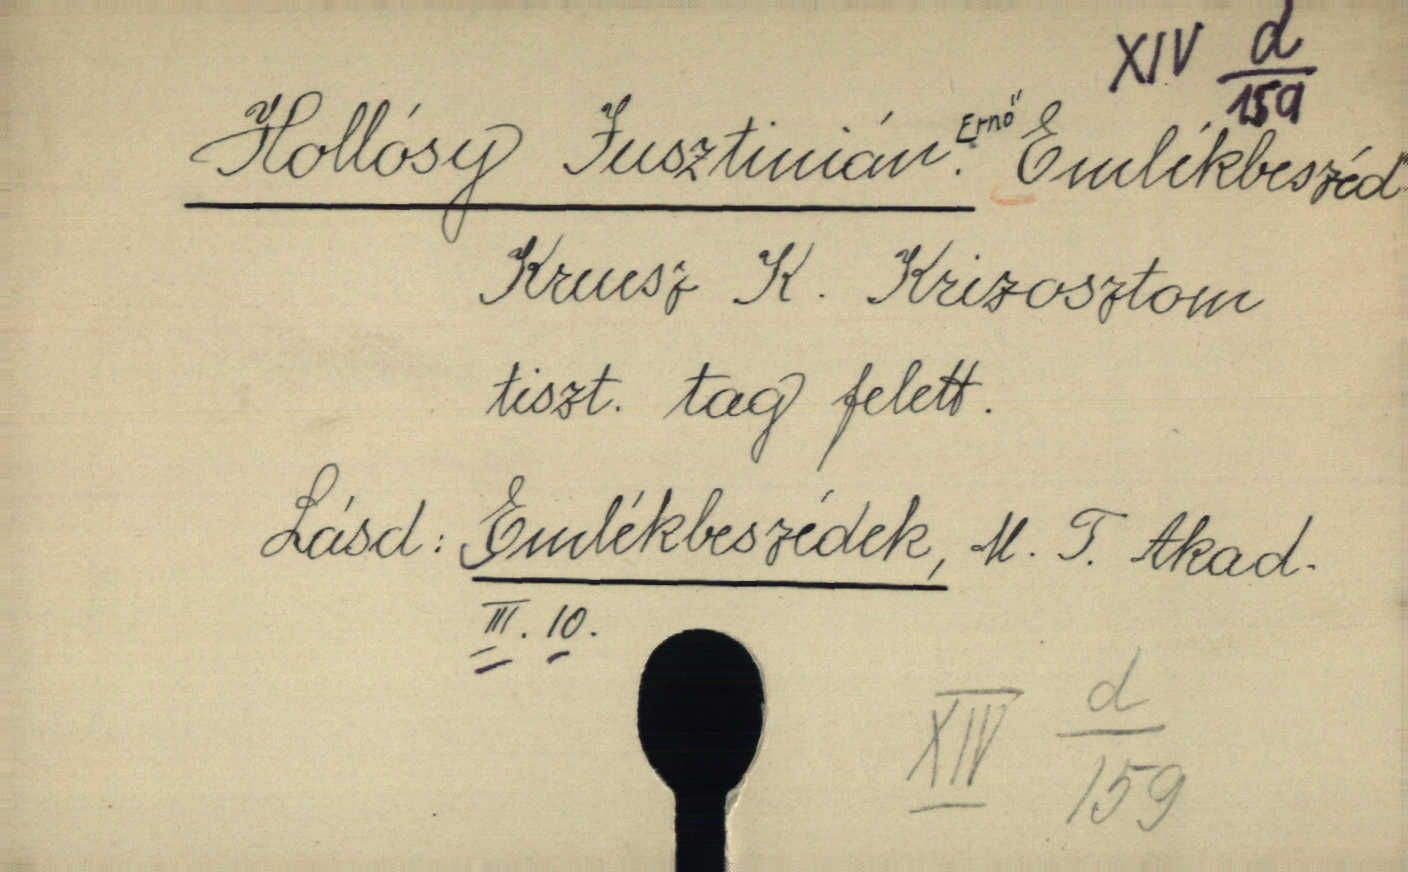 XIV d/159
Hollósy Jusztinián. Ernő Emlékbeszéd
Kruesz K. Krizosztom
tiszt. tag felett.
Lásd: Emlékbeszédek, M. T. Akad.
III. 10.
XIV d/159